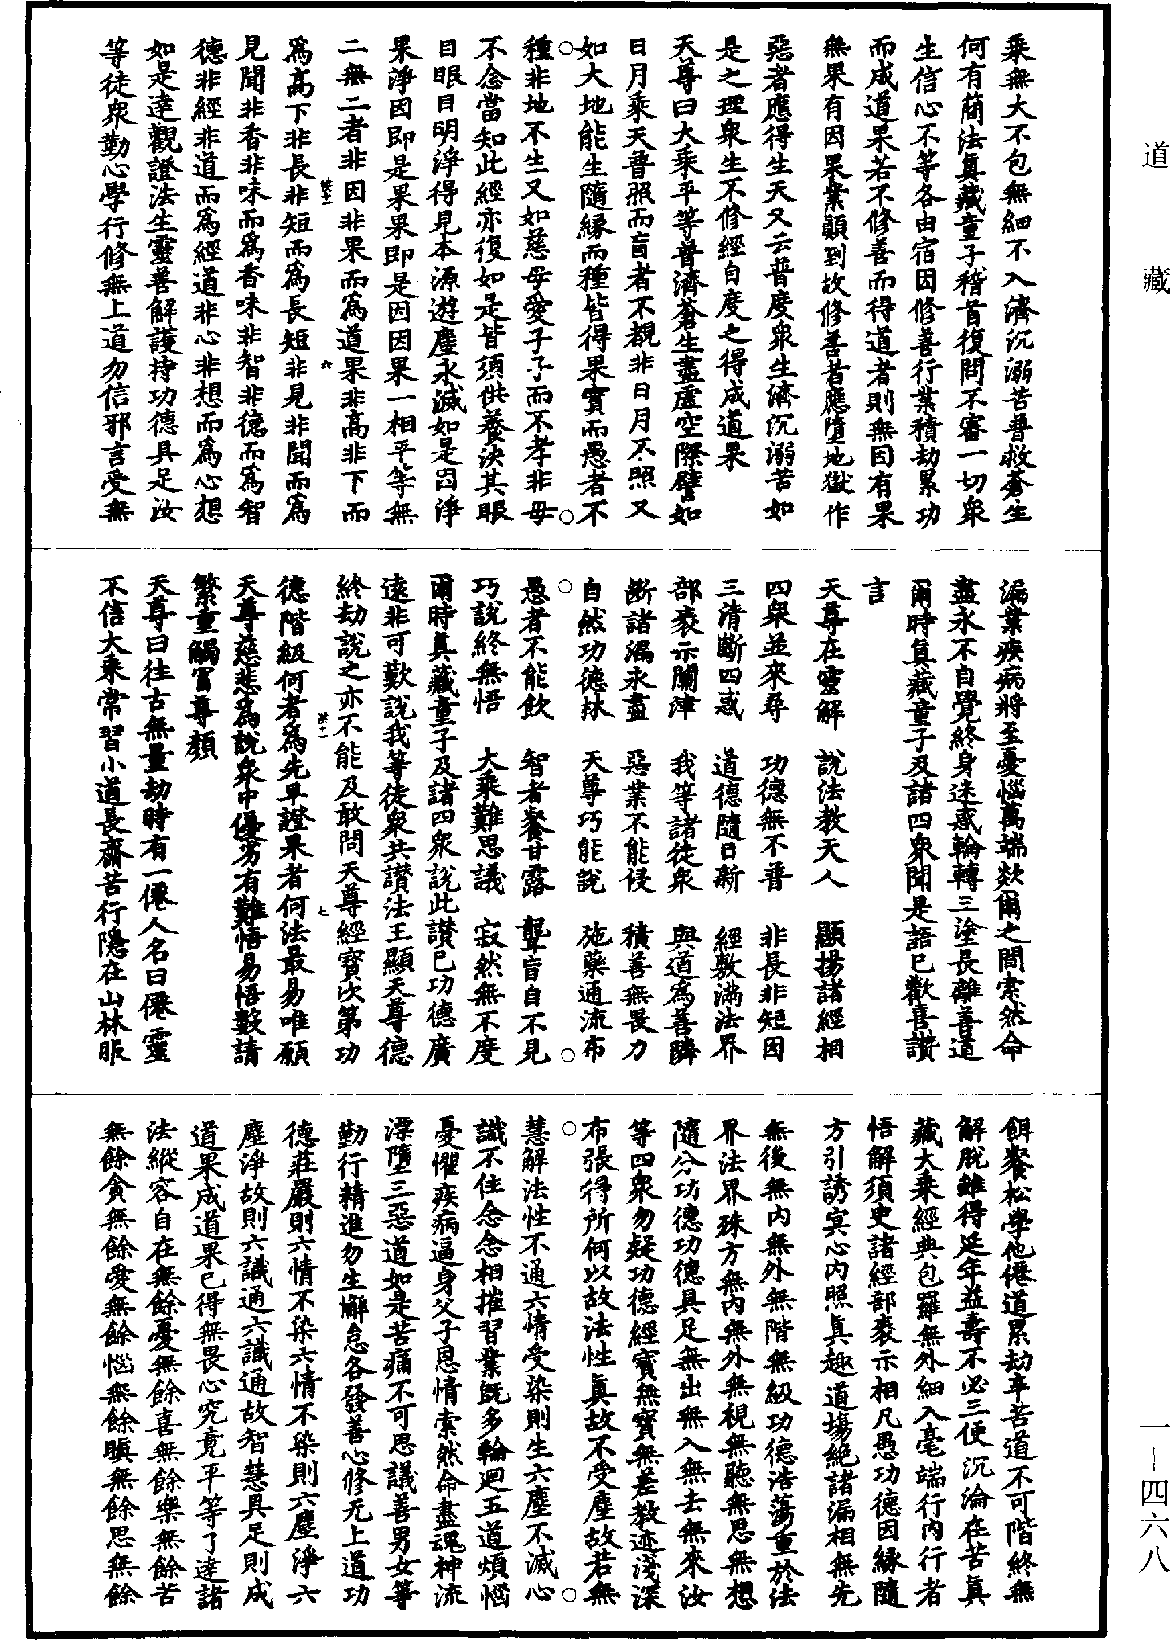 道藏
乘無大不包無細不入濟沉溺苦普救蒼生
何有簡法真藏童子稽首復問不審一切衆
生信心不等各由宿因修善行業積劫累功
而成道果若不修善而得道者則無因有果
無果有因果業顛到故修善者應墮地獄作
惡者應得生天又云普度衆生濟沉溺苦如
是之理衆生不修經自度之得成道果
天尊曰大乘平等普濟蒼生盡虛空際譬如
日月乘天普照而盲者不覩非日月不照又
如大地能生隨緣而種皆得果實而愚者不
種非地不生又如慈母愛子子而不孝非母
不念當知此經亦復如是皆須供養決其眼
目眼目明淨得見本源遊塵永滅如是因淨
果淨因即是果果即是因因果一相平等無
二無二者非因非果而為道果非高非下而
為高下非長非短而為長短非見非聞而為
見聞非香非味而為香味非智非德而為智
德非經非道而為經道非心非想而為心想
如是達觀證法生靈善解護持功德具足汝
等徒衆勤心學行修無上道勿信邪言受無
漏業疾病將至憂惱萬端欻爾之間索然命
盡永不自覺終身迷惑輪轉三塗長離善道
爾時真藏童子及諸四衆聞是語已歡喜讚
言
天尊在靈解　說法教天人　顯揚諸經相
四衆並來尋　功德無不普　非長非短因
三清斷四惑　道德隨日新　經敷滿法界
部袠示關津　我等諸徒衆　與道為善隣
斷諸漏永盡　惡業不能侵　積善無畏力
自然功德林　天尊巧能說　施藥通流布
愚者不能飲　智者飡甘露　聾盲自不見
巧說終無悟　大乘難思議　寂然無不度
爾時真藏童子及諸四衆說此讚已功德廣
遠非可歎說我等徒衆共讚法王顯天尊德
終劫說之亦不能及敢問天尊經寶次第功
德階級何者為先早證果者何法最易唯願
天尊慈悲為說衆中優劣有難悟易悟數請
繁重觸冒尊顏
天尊曰往古無量劫時有一僊人名曰僊靈
不信大乘常習小道長齋苦行隱在山林服
餌飡松學他僊道累劫辛苦道不可階終無
解脫雖得延年益壽不必三便沉淪在苦真
藏大乘經典包羅無外細入毫端行內行者
悟解須臾諸經部袠示相凡愚功德因緣隨
方引誘冥心內照真趣道場絕諸漏相無先
無後無內無外無階無級功德浩蕩重於法
界法界殊方無內無外無視無聽無思無想
隨分功德功德具足無出無入無去無來汝
等四衆勿疑功德經寶無寶無差教迹淺深
布張得所何以故法性真故不受塵故若無
慧解法性不通六情受染則生六塵不滅心
識不住念念相摧習業既多輪迴五道煩惱
憂懼疾病逼身父子恩情索然命盡魂神流
漂墮三惡道如是苦痛不可思議善男女等
勤行精進勿生懈怠各發善心修无上道功
德莊嚴則六情不染六情不染則六塵淨六
塵淨故則六識通六識通故智慧具足則成
道果成道果已得無畏心究竟平等了達諸
法縱容自在無餘憂無餘喜無餘樂無餘苦
無餘貪無餘愛無餘惱無餘瞋無餘思無餘
一—四六八